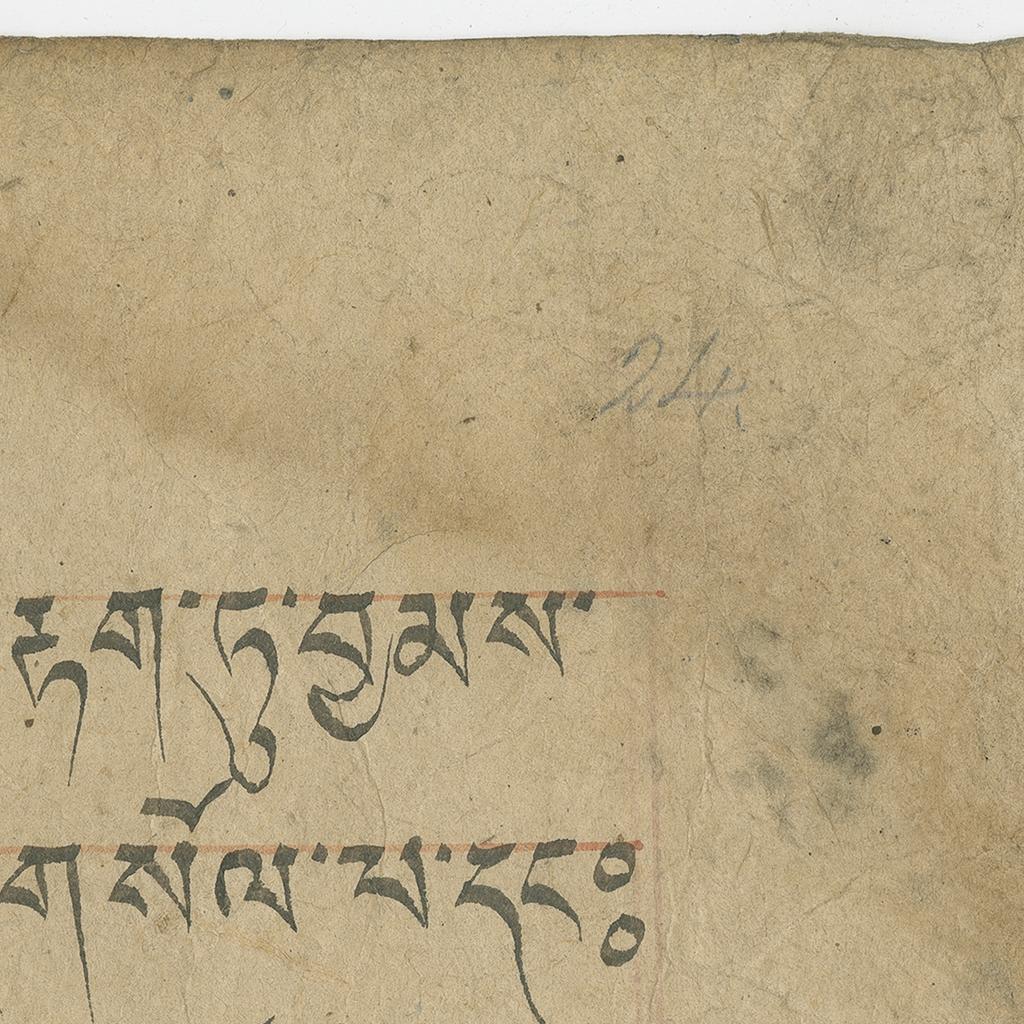 24
རྟག་ཏུ་བྱམས་
གསོལ་པ་དང༔